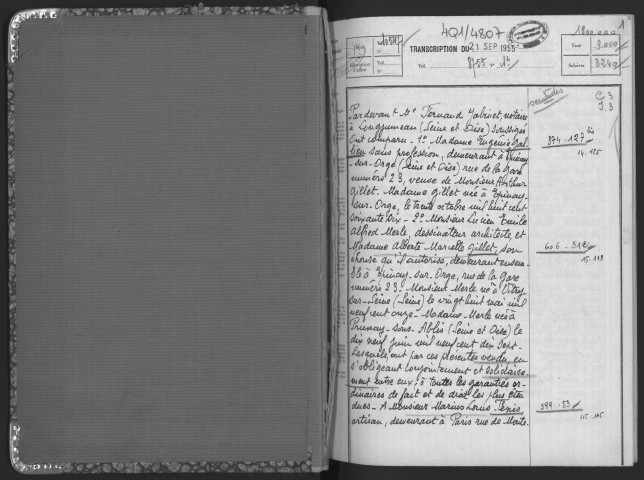 4Q1/4807
1
1800.000
TRANSCRIPTION DU 21 SEP 1955
Vol. 8755 n° 1
Taxe 9.000
Salaires 3240
servitudes
Pardevant Me Fernand Gabinet, notaire
à Longjumeau (Seine et Oise) soussigné
Ont comparu - 1° Madame Eugénie
sans profession, demeurant à Epinay
-sur-Orge (Seine et Oise) rue de la Gare
numéro 23, veuve de Monsieur
Gillet. Madame Gillet née à Epinay-
sur-Orge, le trente octobre mil huit cent
soixante dix - 2° Monsieur Lucien Emile
Alfred Merle, dessinateur architecte, et
Madame Alberte Marcelle Gillet, son
épouse qu'il autorise, demeurant ensem-
ble à Epinay-sur-Orge, rue de la Gare
numéro 23. Monsieur Merle né à Vitry
sur-Seine (Seine) le vingt huit mai mil
neuf cent onze - Madame Merle née à
Prunay-sous-Ablis (Seine et Oise) le
dix neuf juin mil neuf cent dix sept -
Lesquels, ont par ces présentes vendu, en
s'obligeant conjointement et solidaire-
ment entre eux, à toutes les garanties or-
dinaires de fait et de droit les plus éten-
dues - A Monsieur Marius Louis Tenis
artisan, demeurant à Paris rue de
874-127 bis
14.125
606-312
15.119
599-53